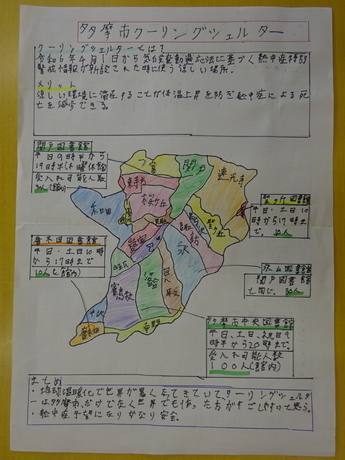 多摩市クーリングシェルター
クーリングシェルターとは?
令和6年4月1日から気候変動適応法に基づく熱中症特別
警戒情報が発表された時に使う涼しい場所。
メリット
涼しい環境に滞在することが体温上昇を防ぎ熱中症による死
亡を減らできる。
関戸図書館
平日9時半から
19時半(木曜休館)
受入れ可能人数
(館内)
一ノ宮
関戸
連光寺
東寺方
桜ヶ丘
和田
乞田
永山
貝取
落合
鶴牧
中沢
唐木田
唐木田図書館
平日・土日10時
から17時まで
10人(館内)
平日・土日10
時から17時まで
永山図書館
関戸図書館
と同じ。
多摩市中央図書館
平日、土日、祝日9
時から20時まで。
受入れ可能人数
100人(館内)
まとめ
・地球温暖化で世界が暑くなってきていて、クーリングシェルタ
ーは多摩市だけでなく世界でも作った方がすごしやすいと思う。
・熱中症予防になりかなり安全。